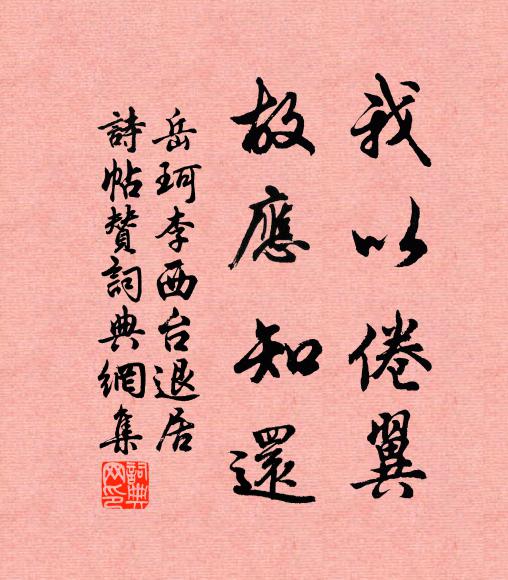 我以倦翼
故應知還
岳珂李西台退居
詩帖贊詞典網集
詞典网印